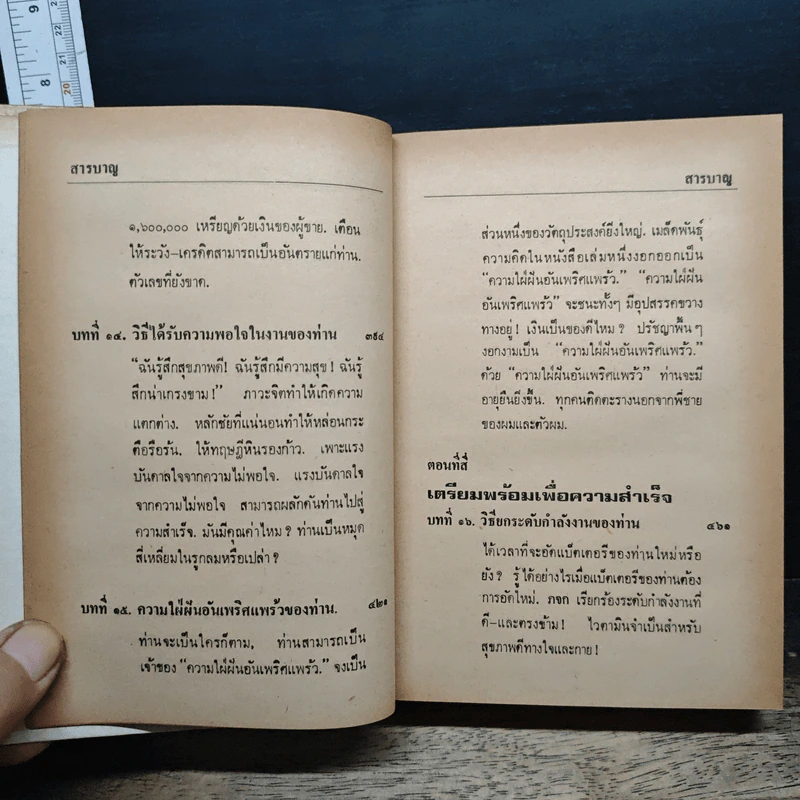 สารบาญ
๑,๖๐๐,๐๐๐ เหรียญด้วยเงินของผู้ขาย. เตือน
ให้ระวัง–เครดิตสามารถเป็นอันตรายแก่ท่าน.
ตัวเลขที่ยังขาด.
บทที่ ๑๔. วิธีได้รับความพอใจในงานของท่าน ๓๙๔
“ฉันรู้สึกสุขภาพดี! ฉันรู้สึกมีความสุข! ฉันรู้
สึกน่าเกรงขาม!” ภาวะจิตทำให้เกิดความ
แตกต่าง. หลักชัยที่แน่นอนทำให้หล่อนกระ
ตือรือร้น. ให้ทฤษฎีหินรองก้าว. เพาะแรง
บันดาลใจจากความไม่พอใจ. แรงบันดาลใจ
จากความไม่พอใจ สามารถผลักดันท่านไปสู่
ความสำเร็จ. มันมีคุณค่าไหม? ท่านเป็นหมุด
สี่เหลี่ยมในรูกลมหรือเปล่า?
บทที่ ๑๕. ความใฝ่ฝันอันเพริศแพร้วของท่าน. ๔๒๑
ท่านจะเป็นใครก็ตาม, ท่านสามารถเป็น
เจ้าของ “ความใฝ่ฝันอันเพริศแพร้ว.” จงเป็น
สารบาญ
ส่วนหนึ่งของวัตถุประสงค์ยิ่งใหญ่. เมล็ดพันธุ์
ความคิดในหนังสือเล่มหนึ่งงอกออกเป็น
“ความใฝ่ฝันอันเพริศแพร้ว.” “ความใฝ่ฝัน
อันเพริศแพร้ว” จะชนะทั้งๆ มีอุปสรรคขวาง
ทางอยู่! เงินเป็นของดีไหม? ปรัชญาพื้นๆ
งอกงามเป็น “ความใฝ่ฝันอันเพริศแพร้ว.”
ด้วย “ความใฝ่ฝันอันเพริศแพร้ว” ท่านจะมี
อายุยืนยิ่งขึ้น. ทุกคนติดตะรางนอกจากพี่ชาย
ของผมและตัวผม.
ตอนที่สี่
เตรียมพร้อมเพื่อความสำเร็จ
บทที่ ๑๖. วิธียกระดับกำลังงานของท่าน ๔๖๑
ได้เวลาที่จะอัดแบ็ตเตอรี่ของท่านใหม่หรือ
ยัง? รู้ได้อย่างไรเมื่อแบ็ตเตอรี่ของท่านต้อง
การอัดใหม่. ภจก เรียกร้องระดับกำลังงานที่
ดี–และตรงข้าม! ไวตามินจำเป็นสำหรับ
สุขภาพดีทางใจและกาย!
9
8
22
21
20